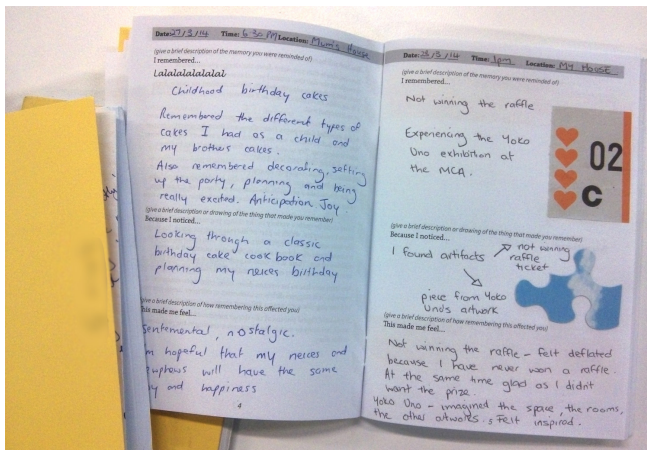 Date: 27/3/14 Time: 6.30 PM Location: Mum's House
(give a brief description of the memory you were reminded of)
I remembered...
Lalalalalalalal
Childhood birthday cakes
Remembered the different types of
cakes I had as a child and
my brothers cakes.
Also remembered decorating, setting
up the party, planning and being
really excited. Anticipation Joy
(give a brief description or drawing of the thing that made you remember)
Because I noticed...
Looking through a classic
birthday cake cook book and
planning my neices birthday
(give a brief description of how remembering this affected you)
This made me feel...
sentemental, nostalgic.
hopeful that my neices and
will have the same
and happiness
4
Date: /3/14 Time: 1pm Location: My House
(give a brief description of the memory you were reminded of)
I remembered...
Not winning the raffle
Experiencing the Yoko
Ono exhibition at
the MCA.
02
C
(give a brief description or drawing of the thing that made you remember)
Because I noticed...
I found artifacts
not winning
raffle
ticket
piece from Yoko
Ono's artwork
(give a brief description of how remembering this affected you)
This made me feel...
Not winning the raffle - felt deflated
because I have never won a raffle.
At the same time glad as I didn't
want the prize.
Yoko Ono - imagined the space, the rooms,
the other artworks, felt inspired.